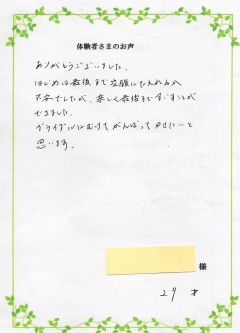 体験者さまのお声
ありがとうございました。
はじめは最後まで空腹にたえれるか
不安でしたが、楽しく最後まですごすことが
できました。
ブライダルにむけてがんばって戸けたいと
思います。
様
29才